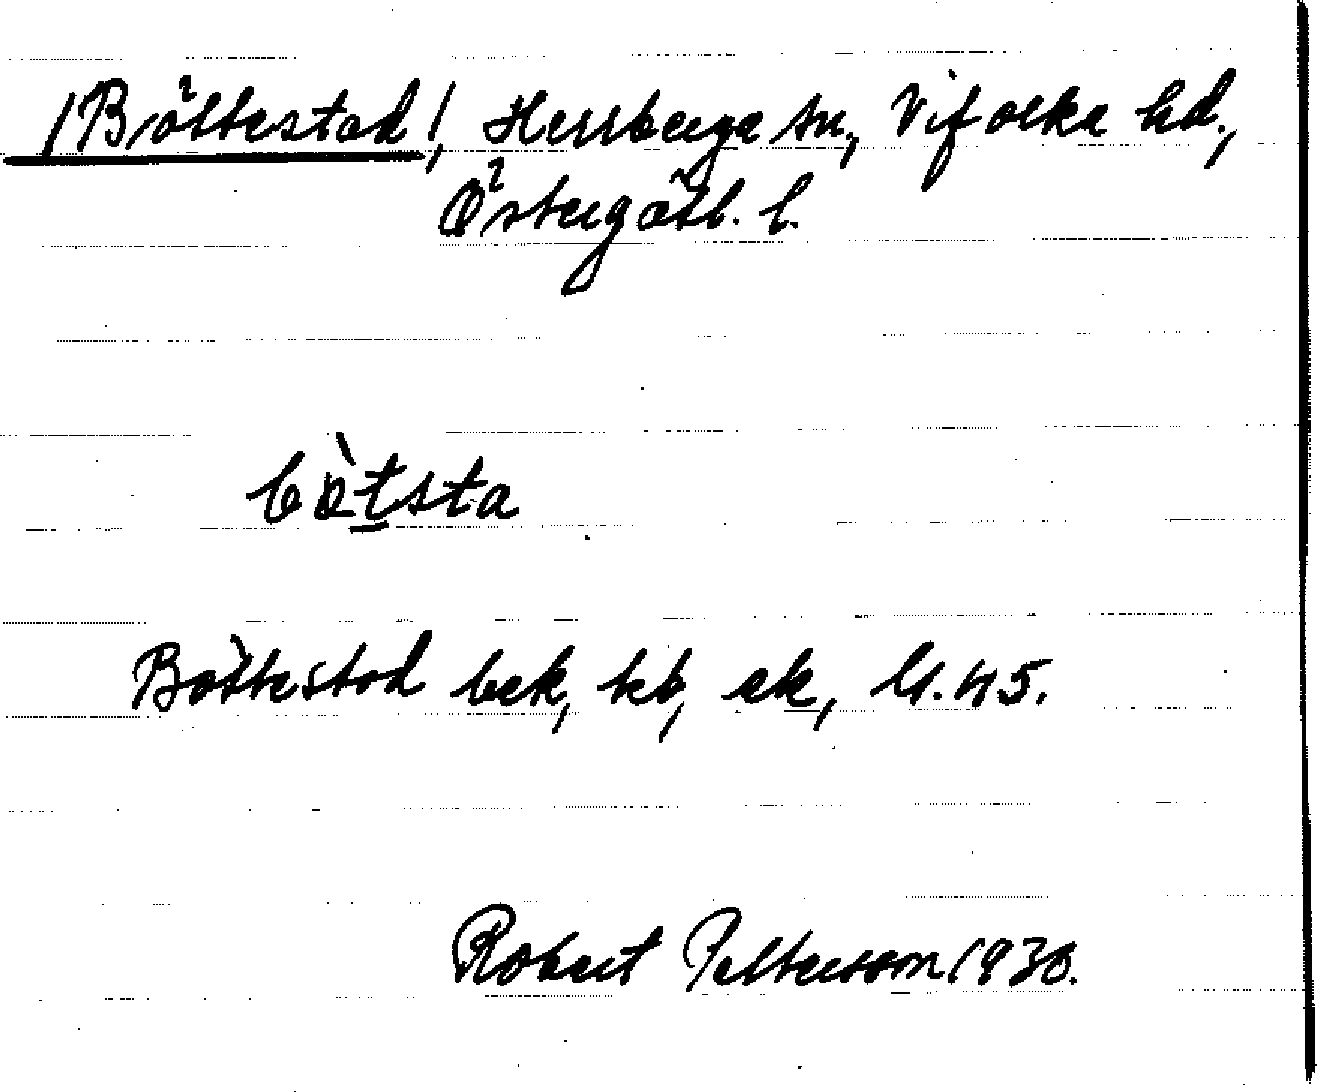 /Böttestad/, Herrberga sn, Vifolka hd,
Östergötl. l.
bòtsta
Bottestad bek, kb, ek, Ll. 45.
Robert Pettersson 1930.